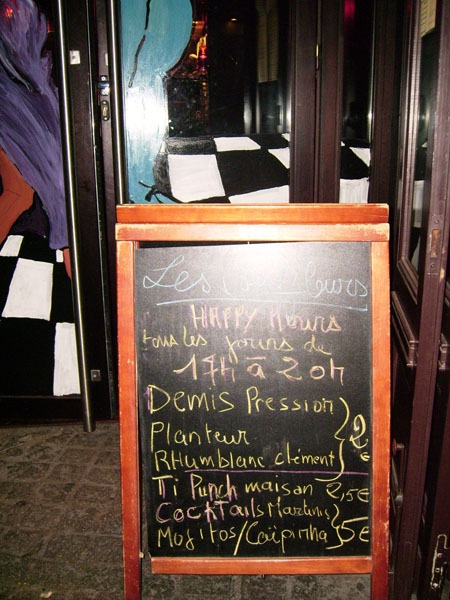 Les
HAPPY Hours
tous les jours de
17h à 20h
Demis Pression
Planteur
RHumblanc clément
2
€
Ti Punch maison 2,5€
Cocktails Martinis
Mojitos/Caïpirihna
5€